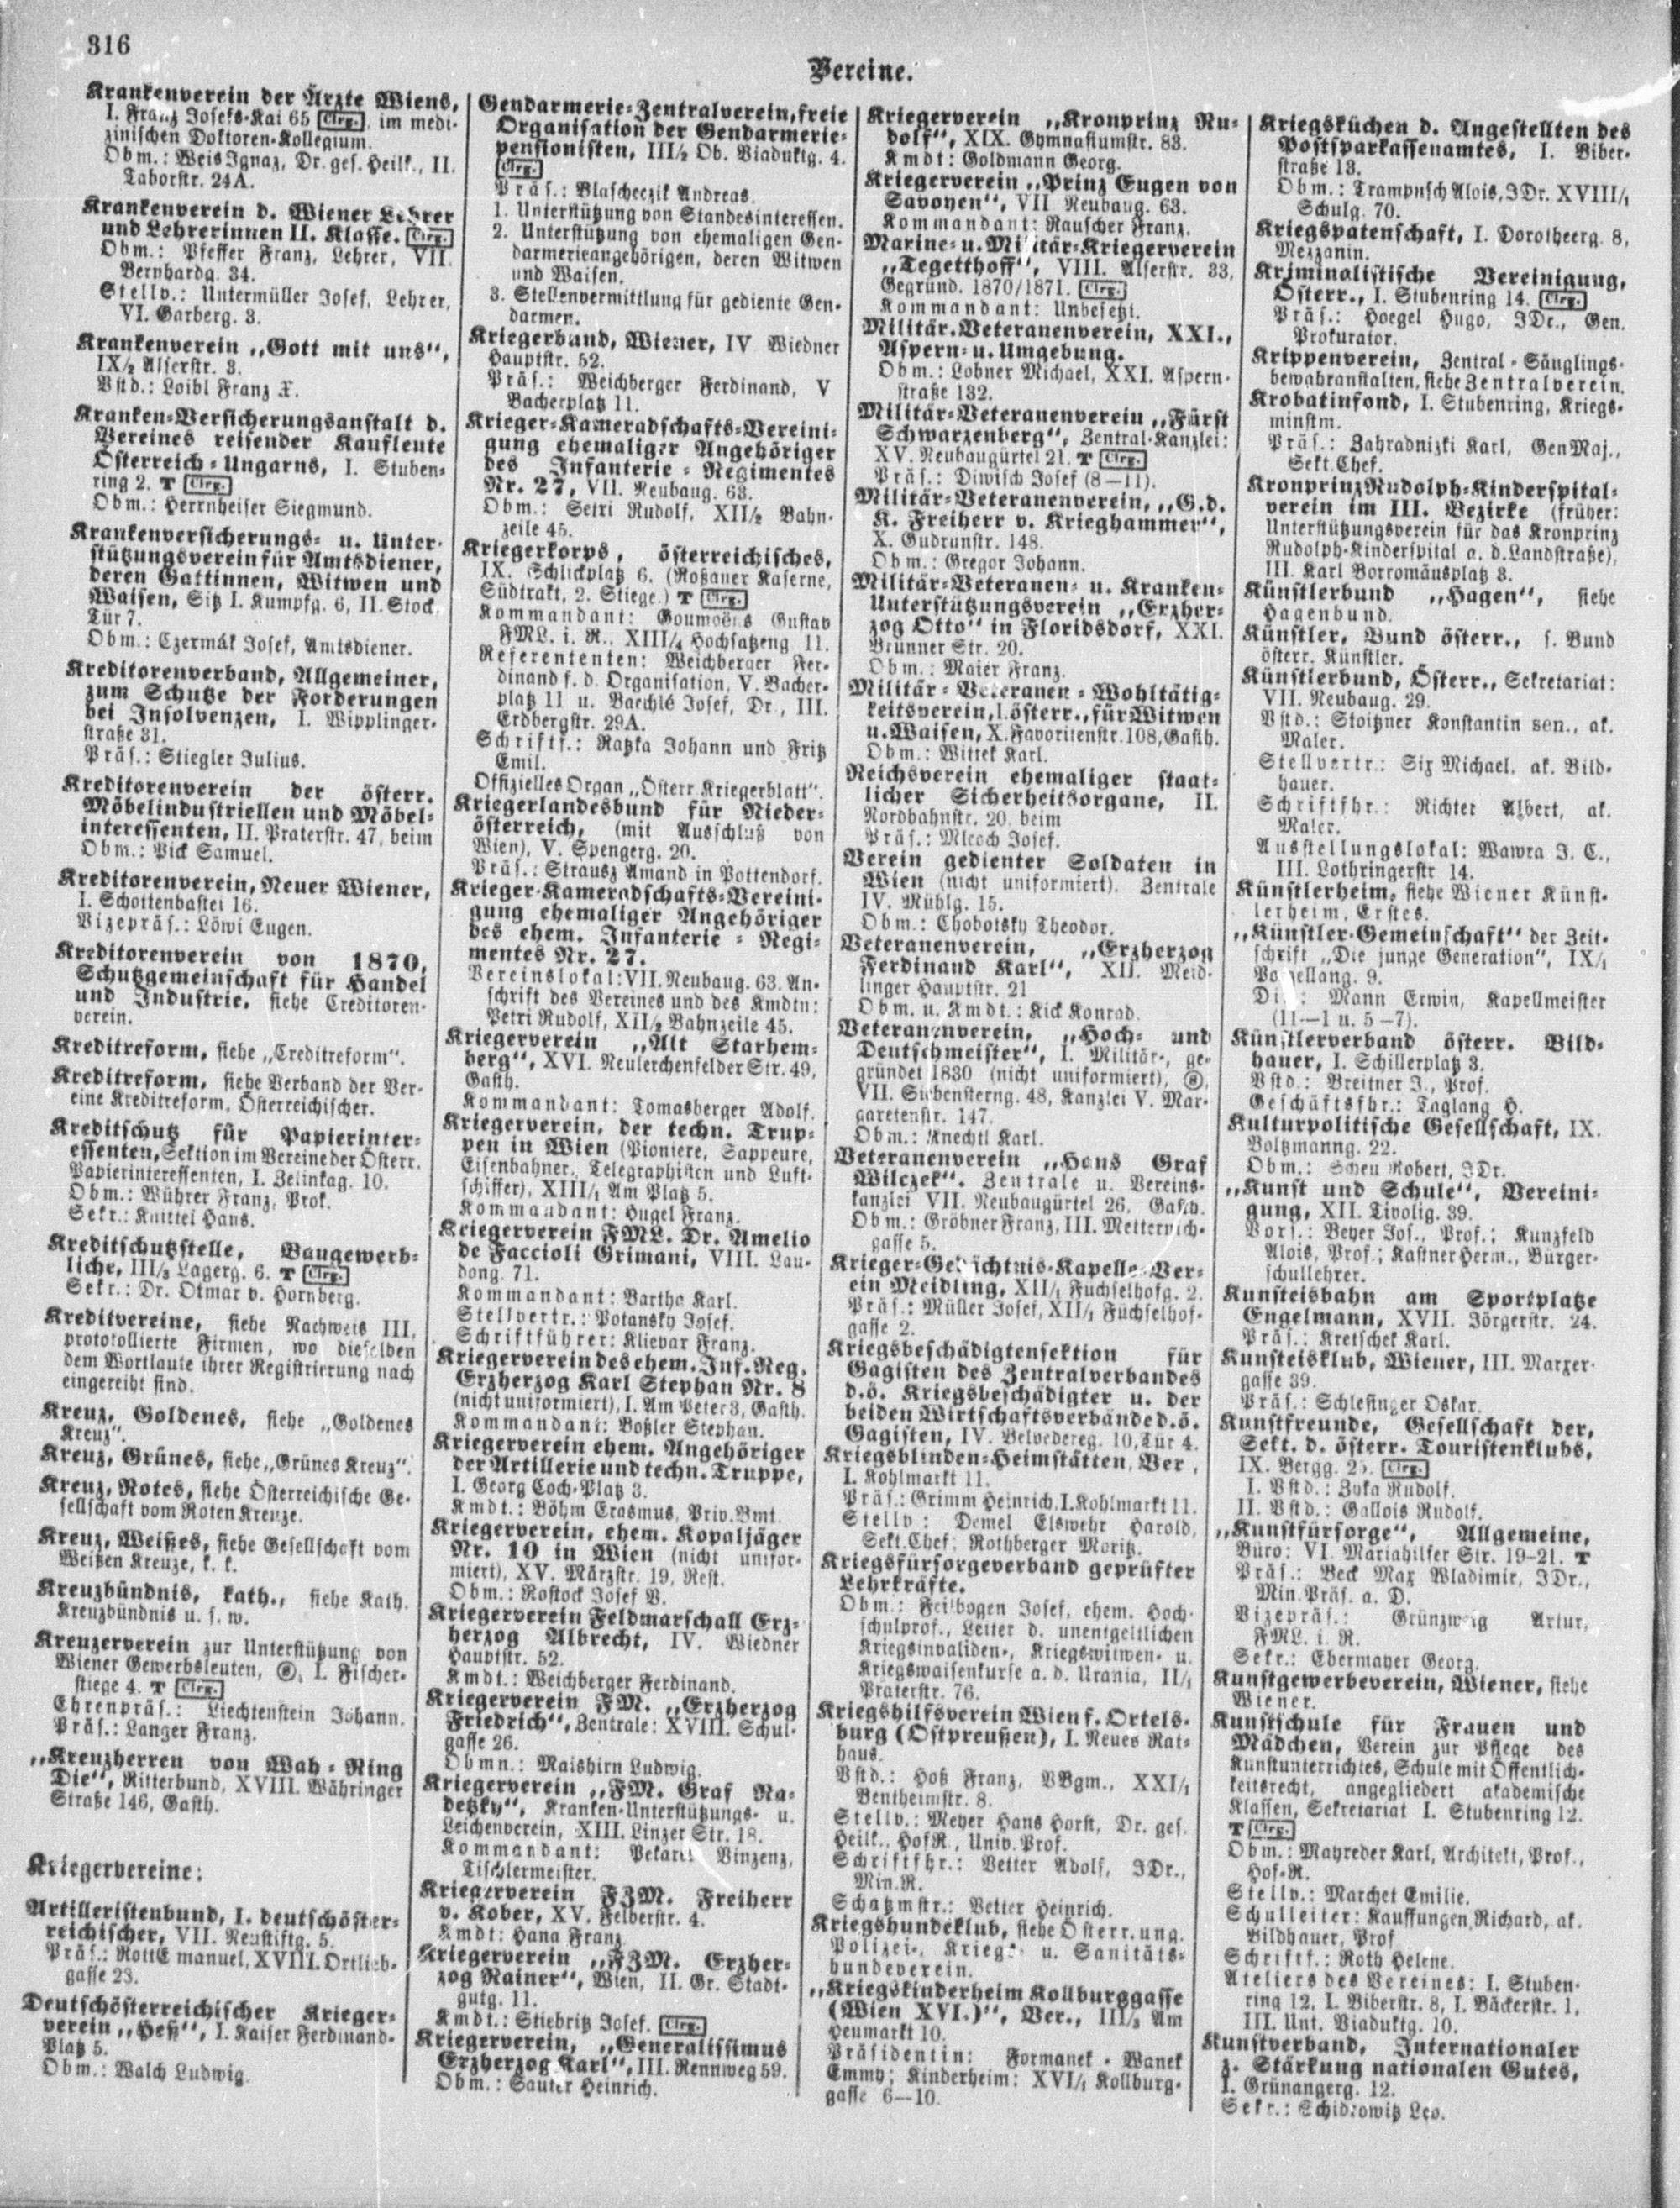 316
Vereine.
Krankenverein der Ärzte Wiens,
I. Franz Josefs-Kai 65 Clrg., im medi-
zinischen Doktoren-Kollegium.
Obm.: Weis Ignaz, Dr. ges. Heilk., II.
Taborstr. 24A.
Krankenverein d. Wiener Lehrer
und Lehrerinnen II. Klasse. Clrg.
Obm.: Pfeffer Franz, Lehrer, VII.
Bernhardg. 34.
Stellv.: Untermüller Josef, Lehrer,
VI. Garberg. 3.
Krankenverein „Gott mit uns“,
IX/2 Alserstr. 3.
Vstd.: Loibl Franz X.
Kranken-Versicherungsanstalt d.
Vereines reisender Kaufleute
Österreich-Ungarns, I. Stuben-
ring 2. T Clrg.
Obm.: Herrnheiser Siegmund.
Krankenversicherungs- u. Unter-
stützungsverein für Amtsdiener,
deren Gattinnen, Witwen und
Waisen, Sitz I. Kumpfg. 6, II. Stock,
Tür 7.
Obm.: Czermák Josef, Amtsdiener.
Kreditorenverband, Allgemeiner,
zum Schutze der Forderungen
bei Insolvenzen, I. Wipplinger-
straße 31.
Präs.: Stiegler Julius.
Kreditorenverein der österr.
Möbelindustriellen und Möbel-
interessenten, II. Praterstr. 47, beim
Obm.: Pick Samuel.
Kreditorenverein, Neuer Wiener,
I. Schottenbastei 16.
Vizepräs.: Löwi Eugen.
Kreditorenverein von 1870,
Schutzgemeinschaft für Handel
und Industrie, siehe Creditoren-
verein.
Kreditreform, siehe „Creditreform“.
Kreditreform, siehe Verband der Ver-
eine Kreditreform, Österreichischer.
Kreditschutz für Papierinter-
essenten, Sektion im Vereine der Österr.
Papierinteressenten, I. Zelinkag. 10.
Obm.: Wührer Franz, Prok.
Sekr.: Knittel Hans.
Kreditschutzstelle, Baugewerb-
liche, III/3 Lagerg. 6. T Clrg.
Sekr.: Dr. Otmar v. Hornberg.
Kreditvereine, siehe Nachweis III,
protokollierte Firmen, wo dieselben
dem Wortlaute ihrer Registrierung nach
eingereiht sind.
Kreuz, Goldenes, siehe „Goldenes
Kreuz“.
Kreuz, Grünes, siehe „Grünes Kreuz“.
Kreuz, Rotes, siehe Österreichische Ge-
sellschaft vom Roten Kreuze.
Kreuz, Weißes, siehe Gesellschaft vom
Weißen Kreuze, k. k.
Kreuzbündnis, kath., siehe Kath.
Kreuzbündnis u. s. w.
Kreuzerverein zur Unterstützung von
Wiener Gewerbsleuten, I. Fischer-
stiege 4. T Clrg.
Ehrenpräs.: Liechtenstein Johann.
Präs.: Langer Franz.
„Kreuzherren von Wah-Ring
Die“, Ritterbund, XVIII. Währinger
Straße 146, Gasth.
Kriegervereine:
Artilleristenbund, I. deutschöster-
reichischer, VII. Neustiftg. 5.
Präs.: Rott Emanuel, XVIII. Ortlieb-
gasse 23.
Deutschösterreichischer Krieger-
verein „Heß“, I. Kaiser Ferdinand-
Platz 5.
Obm.: Walch Ludwig.
Gendarmerie-Zentralverein, freie
Organisation der Gendarmerie-
pensionisten, III/2 Ob. Viaduktg. 4.
Clrg.
Präs.: Blascheczik Andreas.
1. Unterstützung von Standesinteressen.
2. Unterstützung von ehemaligen Gen-
darmerieangehörigen, deren Witwen
und Waisen.
3. Stellenvermittlung für gediente Gen-
darmen.
Kriegerbund, Wiener, IV Wiedner
Hauptstr. 52.
Präs.: Weichberger Ferdinand, V
Bacherplatz 11.
Krieger-Kameradschafts-Vereini-
gung ehemaliger Angehöriger
des Infanterie-Regimentes
Nr. 27, VII. Neubaug. 63.
Obm.: Setri Rudolf, XII/2 Bahn-
zeile 45.
Kriegerkorps, österreichisches,
IX. Schlickplatz 6. (Roßauer Kaserne,
Südtrakt, 2. Stiege.) T Clrg.
Kommandant: Goumoëns Gustav
FML. i. R., XIII/4 Hochsatzeng. 11.
Referententen: Weichberger Fer-
dinand f. d. Organisation, V. Bacher-
platz 11 u. Baechlé Josef, Dr., III.
Erdbergstr. 29A.
Schriftf.: Ratzka Johann und Fritz
Emil.
Offizielles Organ „Österr. Kriegerblatt“.
Kriegerlandesbund für Nieder-
österreich, (mit Ausschluß von
Wien), V. Spengerg. 20.
Präs.: Strausz Amand in Pottendorf.
Krieger-Kameradschafts-Vereini-
gung ehemaliger Angehöriger
des ehem. Infanterie-Regi-
mentes Nr. 27.
Vereinslokal: VII. Neubaug. 63. An-
schrift des Vereines und des Kmdtn:
Petri Rudolf, XII/2 Bahnzeile 45.
Kriegerverein „Alt Starhem-
berg“, XVI. Neulerchenfelder Str. 49,
Gasth.
Kommandant: Tomasberger Adolf.
Kriegerverein, der techn. Trup-
pen in Wien (Pioniere, Sappeure,
Eisenbahner, Telegraphisten und Luft-
schiffer), XIII/1 Am Platz 5.
Kommandant: Hugel Franz.
Kriegerverein FML. Dr. Amelio
de Faccioli Grimani, VIII. Lau-
dong. 71.
Kommandant: Bartha Karl.
Stellvertr.: Potansky Josef.
Schriftführer: Klievar Franz.
Kriegerverein des ehem. Inf.-Reg.
Erzherzog Karl Stephan Nr. 8
(nicht uniformiert), I. Am Peter 3, Gasth.
Kommandant: Boßler Stephan.
Kriegerverein ehem. Angehöriger
der Artillerie und techn. Truppe,
I. Georg Coch-Platz 3.
Kmdt.: Böhm Erasmus, Priv. Bmt.
Kriegerverein, ehem. Kopaljäger
Nr. 10 in Wien (nicht unifor-
miert), XV. Märzstr. 19, Rest.
Obm.: Rostock Josef V.
Kriegerverein Feldmarschall Erz-
herzog Albrecht, IV. Wiedner
Hauptstr. 52.
Kmdt.: Weichberger Ferdinand.
Kriegerverein FM. „Erzherzog
Friedrich“, Zentrale: XVIII. Schul-
gasse 26.
Obmn.: Maishirn Ludwig.
Kriegerverein „FM. Graf Ra-
detzky“, Kranken-Unterstützungs- u.
Leichenverein, XIII. Linzer Str. 18.
Kommandant: Vinzenz,
Tischlermeister.
Kriegerverein FZM. Freiherr
v. Kober, XV. Felberstr. 4.
Kmdt: Hana Franz
Kriegerverein „FZM. Erzher-
zog Rainer“, Wien, II. Gr. Stadt-
gutg. 11.
Kmdt.: Stiebritz Josef. Clrg.
Kriegerverein, „Generalissimus
Erzherzog Karl“, III. Rennweg 59.
Obm.: Sauter Heinrich.
Kriegerverein „Kronprinz Ru-
dolf“, XIX. Gymnasiumstr. 83.
Kmdt: Goldmann Georg.
Kriegerverein „Prinz Eugen von
Savoyen“, VII Neubaug. 63.
Kommandant: Rauscher Franz.
Marine- u. Militär-Kriegerverein
„Tegetthoff“, VIII. Alserstr. 33,
Gegründ. 1870/1871. Clrg.
Kommandant: Unbesetzt.
Militär-Veteranenverein, XXI.,
Aspern- u. Umgebung.
Obm.: Lobner Michael, XXI. Aspern-
straße 132.
Militär-Veteranenverein „Fürst
Schwarzenberg“, Zentral-Kanzlei:
XV. Neubaugürtel 21. T Clrg.
Präs.: Diwisch Josef (8—11).
Militär-Veteranenverein, „G. d.
K. Freiherr v. Krieghammer“,
X. Gudrunstr. 148.
Obm.: Gregor Johann.
Militär-Veteranen- u. Kranken-
Unterstützungsverein „Erzher-
zog Otto“ in Floridsdorf, XXI.
Brünner Str. 20.
Obm.: Maier Franz.
Militär-Veteranen-Wohltätig-
keitsverein, I. österr., für Witwen
u. Waisen, X. Favoritenstr. 108, Gasth.
Obm.: Wittek Karl.
Reichsverein ehemaliger staat-
licher Sicherheitsorgane, II.
Nordbahnstr. 20, beim
Präs.: Mleoch Josef.
Verein gedienter Soldaten in
Wien (nicht uniformiert). Zentrale
IV. Mühlg. 15.
Obm.: Chobotsky Theodor.
Veteranenverein, „Erzherzog
Ferdinand Karl“, XII. Meid-
linger Hauptstr. 21
Obm. u. Kmdt.: Kick Konrad.
Veteranenverein, „Hoch- und
Deutschmeister“, I. Militär-, ge-
gründet 1830 (nicht uniformiert),
VII. Siebensterng. 48, Kanzlei V. Mar-
garetenstr. 147.
Obm.: Knechtl Karl.
Veteranenverein „Hans Graf
Wilczek“. Zentrale u. Vereins-
kanzlei VII. Neubaugürtel 26, Gasth.
Obm.: Gröbner Franz, III. Metternich-
gasse 5.
Krieger-Gedächtnis-Kapelle-Ver-
ein Meidling, XII/1 Füchselhofg. 2.
Präs.: Müller Josef, XII/1 Füchselhof-
gasse 2.
Kriegsbeschädigtensektion für
Gagisten des Zentralverbandes
d.ö. Kriegsbeschädigter u. der
beiden Wirtschaftsverbände d.ö.
Gagisten, IV. Belvedereg. 10, Tür 4.
Kriegsblinden-Heimstätten, Ver.,
I. Kohlmarkt 11.
Präs.: Grimm Heinrich, I. Kohlmarkt 11.
Stellv: Demel Elswehr Harold,
Sekt. Chef; Rothberger Moritz.
Kriegsfürsorgeverband geprüfter
Lehrkräfte.
Obm.: Feilbogen Josef, ehem. Hoch-
schulprof., Leiter d. unentgeltlichen
Kriegsinvaliden-, Kriegswitwen- u.
Kriegswaisenkurse a. d. Urania, II/1
Praterstr. 76.
Kriegshilfsverein Wien f. Ortels-
burg (Ostpreußen), I. Neues Rat-
haus.
Vstd.: Hoß Franz, VBgm., XXI/1
Bentheimstr. 8.
Stellv.: Meyer Hans Horst, Dr. ges.
Heilk., HofR., Univ. Prof.
Schriftfhr.: Vetter Adolf, JDr.,
Min.R.
Schatzmstr.: Vetter Heinrich.
Kriegshundeklub, siehe Österr. ung.
Polizei-, Kriegs- u. Sanitäts-
hundeverein.
„Kriegskinderheim Kollburggasse
(Wien XVI.)“, Ver., III/3 Am
Heumarkt 10.
Präsidentin: Formanek-Wanek
Emmy; Kinderheim: XVI/1 Kollburg-
gasse 6—10.
Kriegsküchen d. Angestellten des
Postsparkassenamtes, I. Biber-
straße 13.
Obm.: Trampusch Alois, JDr. XVIII/1
Schulg. 70.
Kriegspatenschaft, I. Dorotheerg. 8,
Mezzanin.
Kriminalistische Vereinigung,
Österr., I. Stubenring 14. Clrg.
Präs.: Hoegel Hugo, JDr., Gen.
Prokurator.
Krippenverein, Zentral-Säuglings-
bewahranstalten, siehe Zentralverein.
Krobatinfond, I. Stubenring, Kriegs-
minstm.
Präs.: Zahradnizki Karl, GenMaj.,
Sekt. Chef.
Kronprinz Rudolph-Kinderspital-
verein im III. Bezirke (früher:
Unterstützungsverein für das Kronprinz
Rudolph-Kinderspital a. d. Landstraße),
III. Karl Borromäusplatz 3.
Künstlerbund „Hagen“, siehe
Hagenbund.
Künstler, Bund österr., s. Bund
österr. Künstler.
Künstlerbund, Österr., Sekretariat:
VII. Neubaug. 29.
Vstd.: Stoitzner Konstantin sen., ak.
Maler.
Stellvertr.: Six Michael, ak. Bild-
hauer.
Schriftfhr.: Richter Albert, ak.
Maler.
Ausstellungslokal: Wawra J. C.,
III. Lothringerstr 14.
Künstlerheim, siehe Wiener Künst-
lerheim, Erstes.
„Künstler-Gemeinschaft“ der Zeit-
schrift „Die junge Generation“, IX/1
9.
Mann Erwin, Kapellmeister
(11—1 u. 5—7).
Künstlerverband österr. Bild-
hauer, I. Schillerplatz 3.
Vstd.: Breitner J., Prof.
Geschäftsfhr.: Taglang H.
Kulturpolitische Gesellschaft, IX.
Boltzmanng. 22.
Obm.: Scheu Robert, JDr.
„Kunst und Schule“, Vereini-
gung, XII. Tivolig. 39.
Vors.: Beyer Jos., Prof.; Kunzfeld
Alois, Prof.; Kastner Herm., Bürger-
schullehrer.
Kunsteisbahn am Sportplatze
Engelmann, XVII. Jörgerstr. 24.
Präs.: Kretschek Karl.
Kunsteisklub, Wiener, III. Marxer-
gasse 39.
Präs.: Schlesinger Oskar.
Kunstfreunde, Gesellschaft der,
Sekt. d. österr. Touristenklubs,
IX. Bergg. Clrg.
I. Vstd.: Zyka Rudolf.
II. Vstd.: Gallois Rudolf.
„Kunstfürsorge“, Allgemeine,
Büro: VI. Mariahilfer Str. 19-21. T
Präs.: Beck Max Wladimir, JDr.,
Min. Präs. a. D.
Vizepräs.: Grünzweig Artur,
FML. i. R.
Sekr.: Ebermayer Georg.
Kunstgewerbeverein, Wiener, siehe
Wiener.
Kunstschule für Frauen und
Mädchen, Verein zur Pflege des
Kunstunterrichtes, Schule mit Öffentlich-
keitsrecht, angegliedert akademische
Klassen, Sekretariat I. Stubenring 12.
T Clrg.
Obm.: Mayreder Karl, Architekt, Prof.,
Hof-R.
Stellv.: Marchet Emilie.
Schulleiter: Kauffungen Richard, ak.
Bildhauer, Prof.
Schriftf.: Roth Helene.
Ateliers des Vereines: I. Stuben-
ring 12, I. Biberstr. 8, I. Bäckerstr. 1,
III. Unt. Viaduktg. 10.
Kunstverband, Internationaler
z. Stärkung nationalen Gutes,
I. Grünangerg. 12.
Sekr.: Schidrowitz Leo.